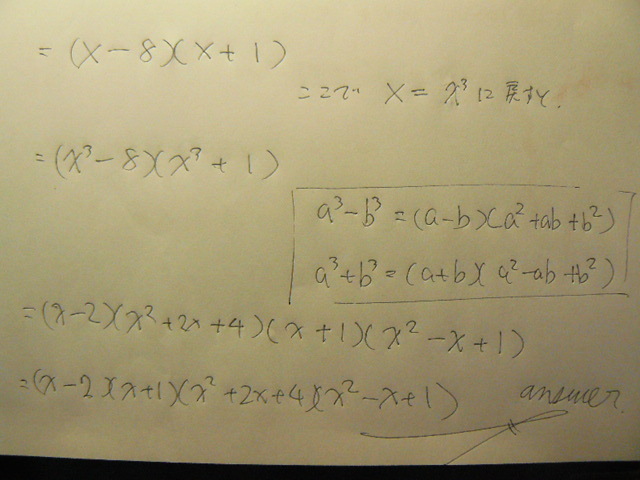 = (X-8)(X+1)
ここで X = x³に戻すと.
= (x³-8)(x³+1)
a³-b³ = (a-b)(a²+ab+b²)
a³+b³ = (a+b)(a²-ab+b²)
= (x-2)(x²+2x+4)(x+1)(x²-x+1)
= (x-2)(x+1)(x²+2x+4)(x²-x+1) answer.